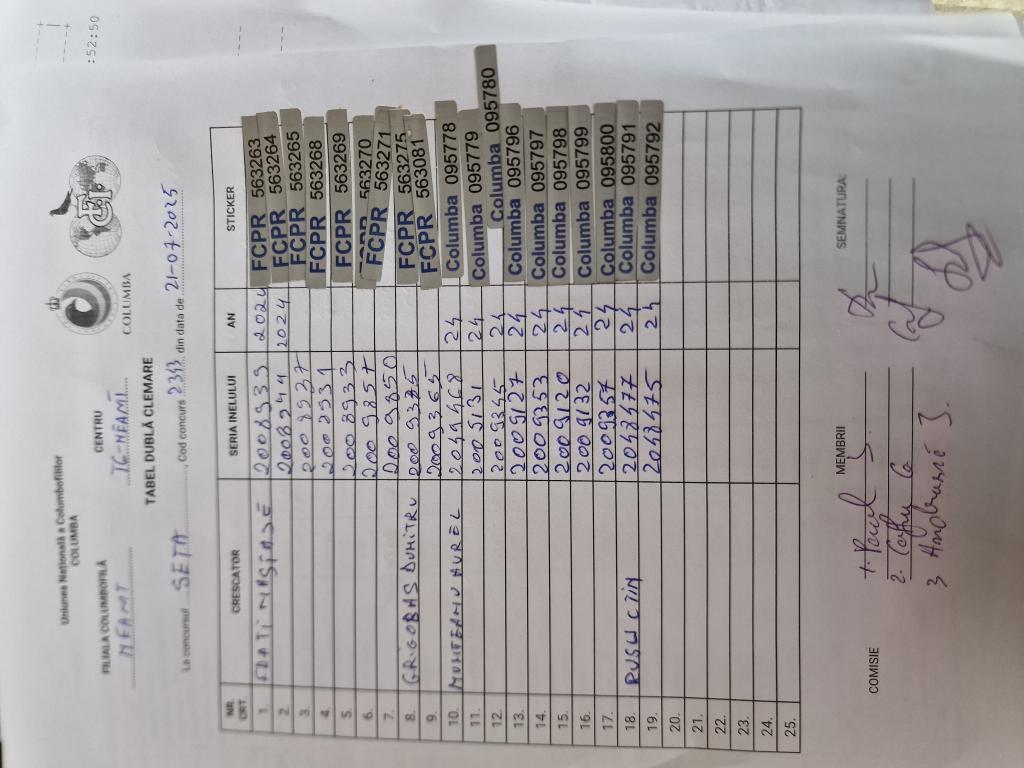 :52:50
Uniunea Națională a Columbofililor
COLUMBA
COLUMBA
FILIALA COLUMBOFILĂ CENTRU
NEAMT TG-NEAMȚ
TABEL DUBLĂ CLEMARE
La concursul SETA, Cod concurs din data de 21-07-2025
NR. CRT. CRESCATOR SERIA INELULUI AN STICKER
1. FRATI NASTASE 2008939 2024 FCPR 563263
2. 2008944 2024 FCPR 563264
3. 2008937 FCPR 563265
4. 2008931 FCPR 563268
5. 2008933 FCPR 563269
6. 2009857 563270
7. 2009850 FCPR 563271
8. GRIGORAS DUMITRU FCPR 563275
9. 2009365 FCPR 563081
10. MUNTEANU AUREL 2044468 24 Columba 095778
11. 2009131 24 Columba 095779
12. 2009345 24 Columba 095780
13. 2009127 24 Columba 095796
14. 2009353 24 Columba 095797
15. 2009120 24 Columba 095798
16. 2009132 24 Columba 095799
17. 2009357 24 Columba 095800
18. RUSU CIIN 2048477 24 Columba 095791
19. 2048475 24 Columba 095792
20.
21.
22.
23.
24.
25.
COMISIE MEMBRII SEMNATURA:
1.
2.
3